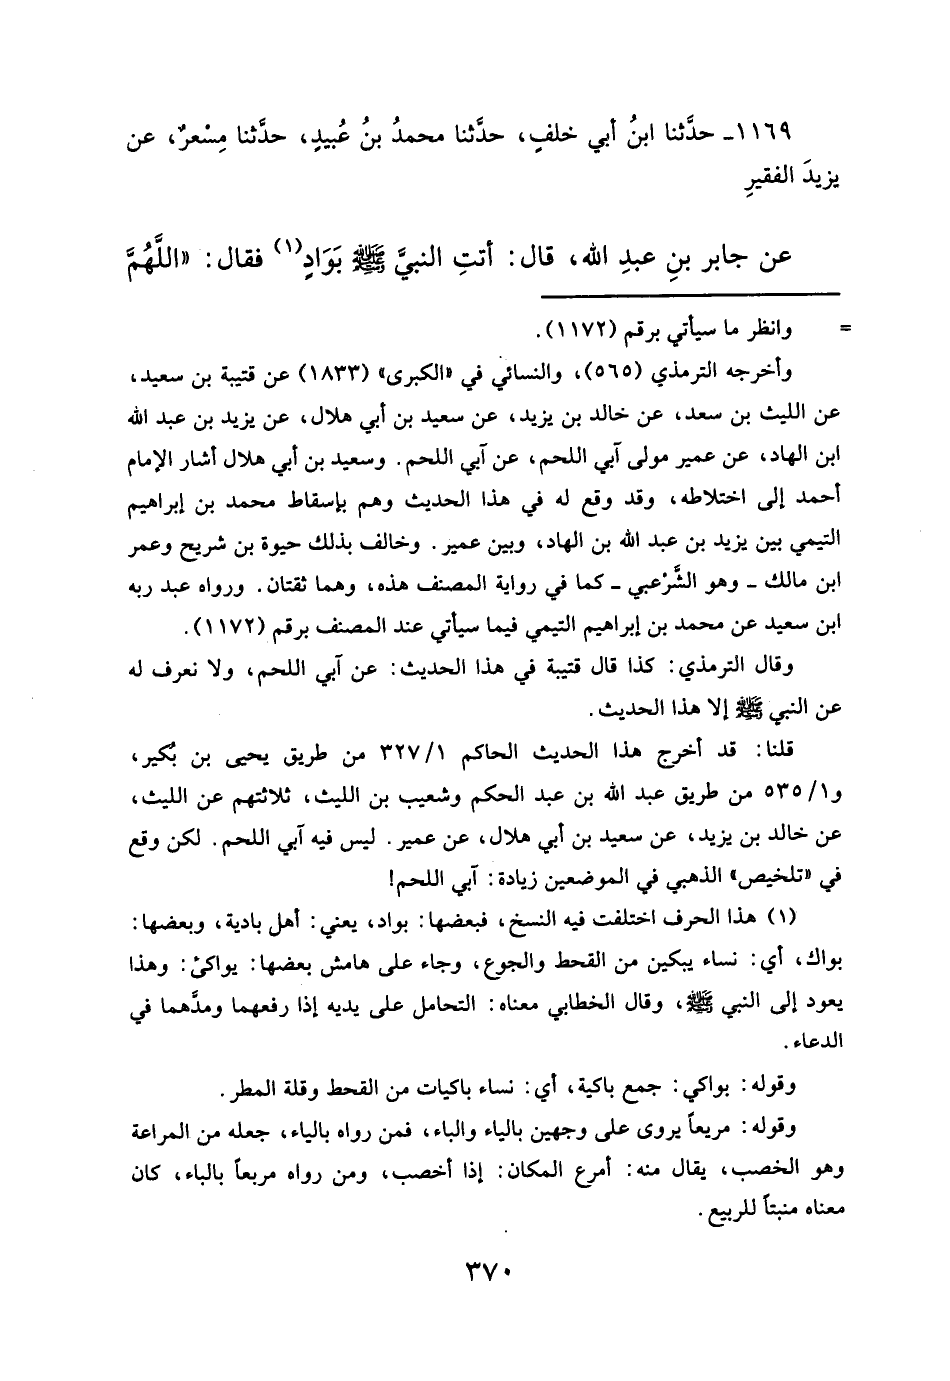 ١١٦٩ـ حدَّثنا ابنُ أبي خلفٍ، حدَّثنا محمدُ بنُ عُبيدٍ، حدَّثنا مِسْعرٌ، عن
يزيدَ الفقيرِ
عن جابر بنِ عبدِ الله، قال: أتتِ النبيَّ ﷺ بَوَادٍ(١) فقال: «اللَّهُمَّ
= وانظر ما سيأتي برقم (١١٧٢).
وأخرجه الترمذي (٥٦٥)، والنسائي في «الكبرى» (١٨٣٣) عن قتيبة بن سعيد،
عن الليث بن سعد، عن خالد بن يزيد، عن سعيد بن أبي هلال، عن يزيد بن عبد الله
ابن الهاد، عن عمير مولى آبي اللحم، عن آبي اللحم. وسعيد بن أبي هلال أشار الإمام
أحمد إلى اختلاطه، وقد وقع له في هذا الحديث وهم بإسقاط محمد بن إبراهيم
التيمي بين يزيد بن عبد الله بن الهاد، وبين عمير. وخالف بذلك حيوة بن شريح وعمر
ابن مالك ـ وهو الشَّرْعبي ـ كما في رواية المصنف هذه، وهما ثقتان. ورواه عبد ربه
ابن سعيد عن محمد بن إبراهيم التيمي فيما سيأتي عند المصنف برقم (١١٧٢).
وقال الترمذي: كذا قال قتيبة في هذا الحديث: عن آبي اللحم، ولا نعرف له
عن النبي ﷺ إلا هذا الحديث.
قلنا: قد أخرج هذا الحديث الحاكم ٣٢٧/١ من طريق يحيى بن بُكير،
و٥٣٥/١ من طريق عبد الله بن عبد الحكم وشعيب بن الليث، ثلاثتهم عن الليث،
عن خالد بن يزيد، عن سعيد بن أبي هلال، عن عمير. ليس فيه آبي اللحم. لكن وقع
في «تلخيص» الذهبي في الموضعين زيادة: آبي اللحم!
(١) هذا الحرف اختلفت فيه النسخ، فبعضها: بواد، يعني: أهل بادية، وبعضها:
بواك، أي: نساء يبكين من القحط والجوع، وجاء على هامش بعضها: يواكئ: وهذا
يعود إلى النبي ﷺ، وقال الخطابي معناه: التحامل على يديه إذا رفعهما ومدَّهما في
الدعاء.
وقوله: بواكي: جمع باكية، أي: نساء باكيات من القحط وقلة المطر.
وقوله: مريعاً يروى على وجهين بالياء والباء، فمن رواه بالياء، جعله من المراعة
وهو الخصب، يقال منه: أمرع المكان: إذا أخصب، ومن رواه مربعاً بالباء، كان
معناه منبتاً للربيع.
٣٧٠